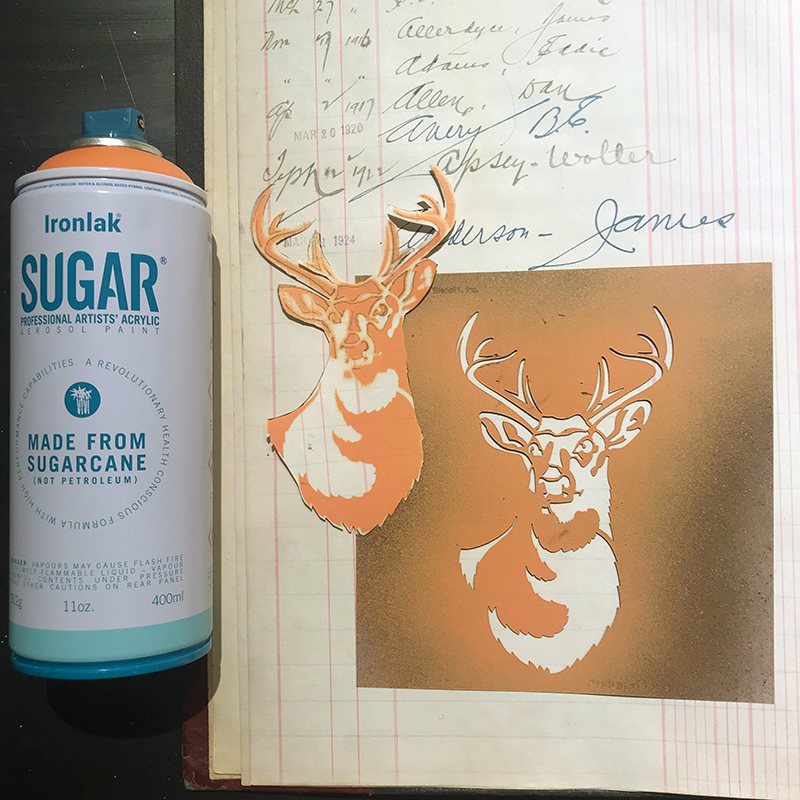 Ironlak®
SUGAR®
PROFESSIONAL ARTISTS' ACRYLIC
AEROSOL PAINT
CAPABILITIES. A REVOLUTIONARY HEALTH CONSCIOUS FORMULA WITH HIGH PERFORMANCE
MADE FROM
SUGARCANE
(NOT PETROLEUM)
VAPOURS MAY CAUSE FLASH FIRE
FLAMMABLE LIQUID - VAPOUR
CONTENTS UNDER PRESSURE
OTHER CAUTIONS ON REAR PANEL
11oz. 400ml
27 "
1916 Allerdyce, James
" " " Adams, Eddie
Ap 2 1917 Allen, Dan
MAR 20 1920 Avery B.E.
Apsey-Wolter
1924 Anderson - James
Stencil1, Inc.